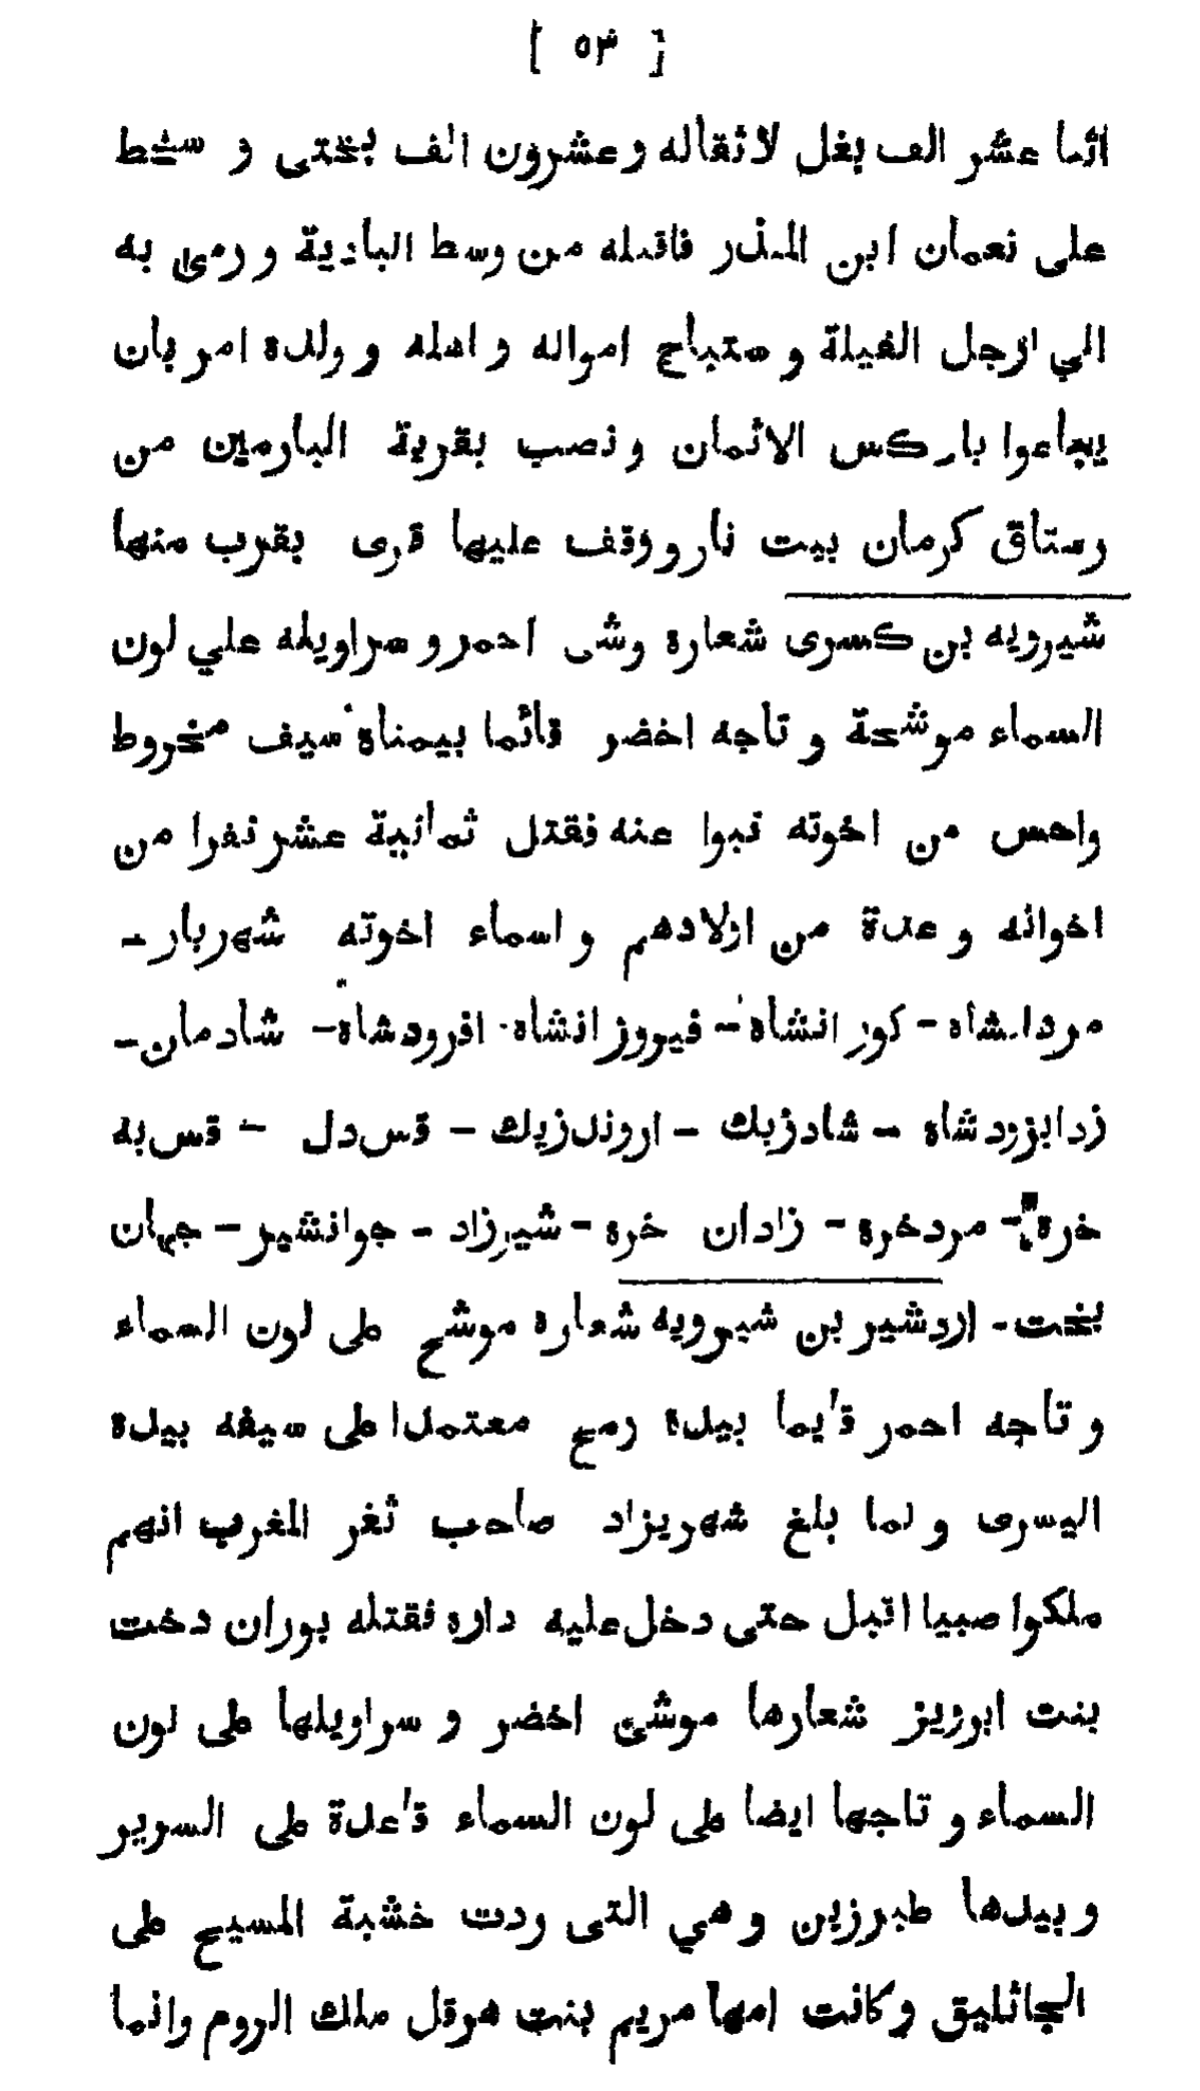 [ ٥٣ ]
اثما عشر الف بغل لاثقاله و عشرون الف بختى و سخط
على نعمان ابن المنذر فاقتله من وسط البادية و رمى به
الي ارجل الفيلة و ستباح امواله و اهله و ولده امر بان
يباعوا باركس الاثمان و نصب بقرية البارمين من
رستاق كرمان بيت نار و وقف عليها قرى بقرب منها
شيرويه بن كسرى شعاره وشى احمر و سراويله علي لون
السماء موشحة و تاجه اخضر قائما بيمناه سيف مخروط
واحس من اخوته نبوا عنه فقتل ثمانية عشر نفرا من
اخوانه و عدة من اولادهم و اسماء اخوته شهربار -
مردانشاه - كورانشاه - فيروزانشاه - افرودشاه - شادمان -
زدابزودشاه - شادزيك - اروندزيك - قس دل - قس به
خره - مردخره - زادان خره - شيرزاد - جوانشير - جهان
بخت - اردشير بن شيرويه شعاره موشح على لون السماء
و تاجه احمر قايما بيده رمح معتمدا على سيفه بيده
اليسرى و لما بلغ شهريزاد صاحب ثغر المغرب انهم
ملكوا صبيا اقبل حتى دخل عليه داره فقتله بوران دخت
بنت ابرويز شعارها موشى اخضر و سراويلها على لون
السماء و تاجها ايضا على لون السماء قاعدة على السرير
و بيدها طبرزين و هي التى ردت خشبة المسيح على
الجاثليق و كانت امها مريم بنت هرقل ملك الروم و انما